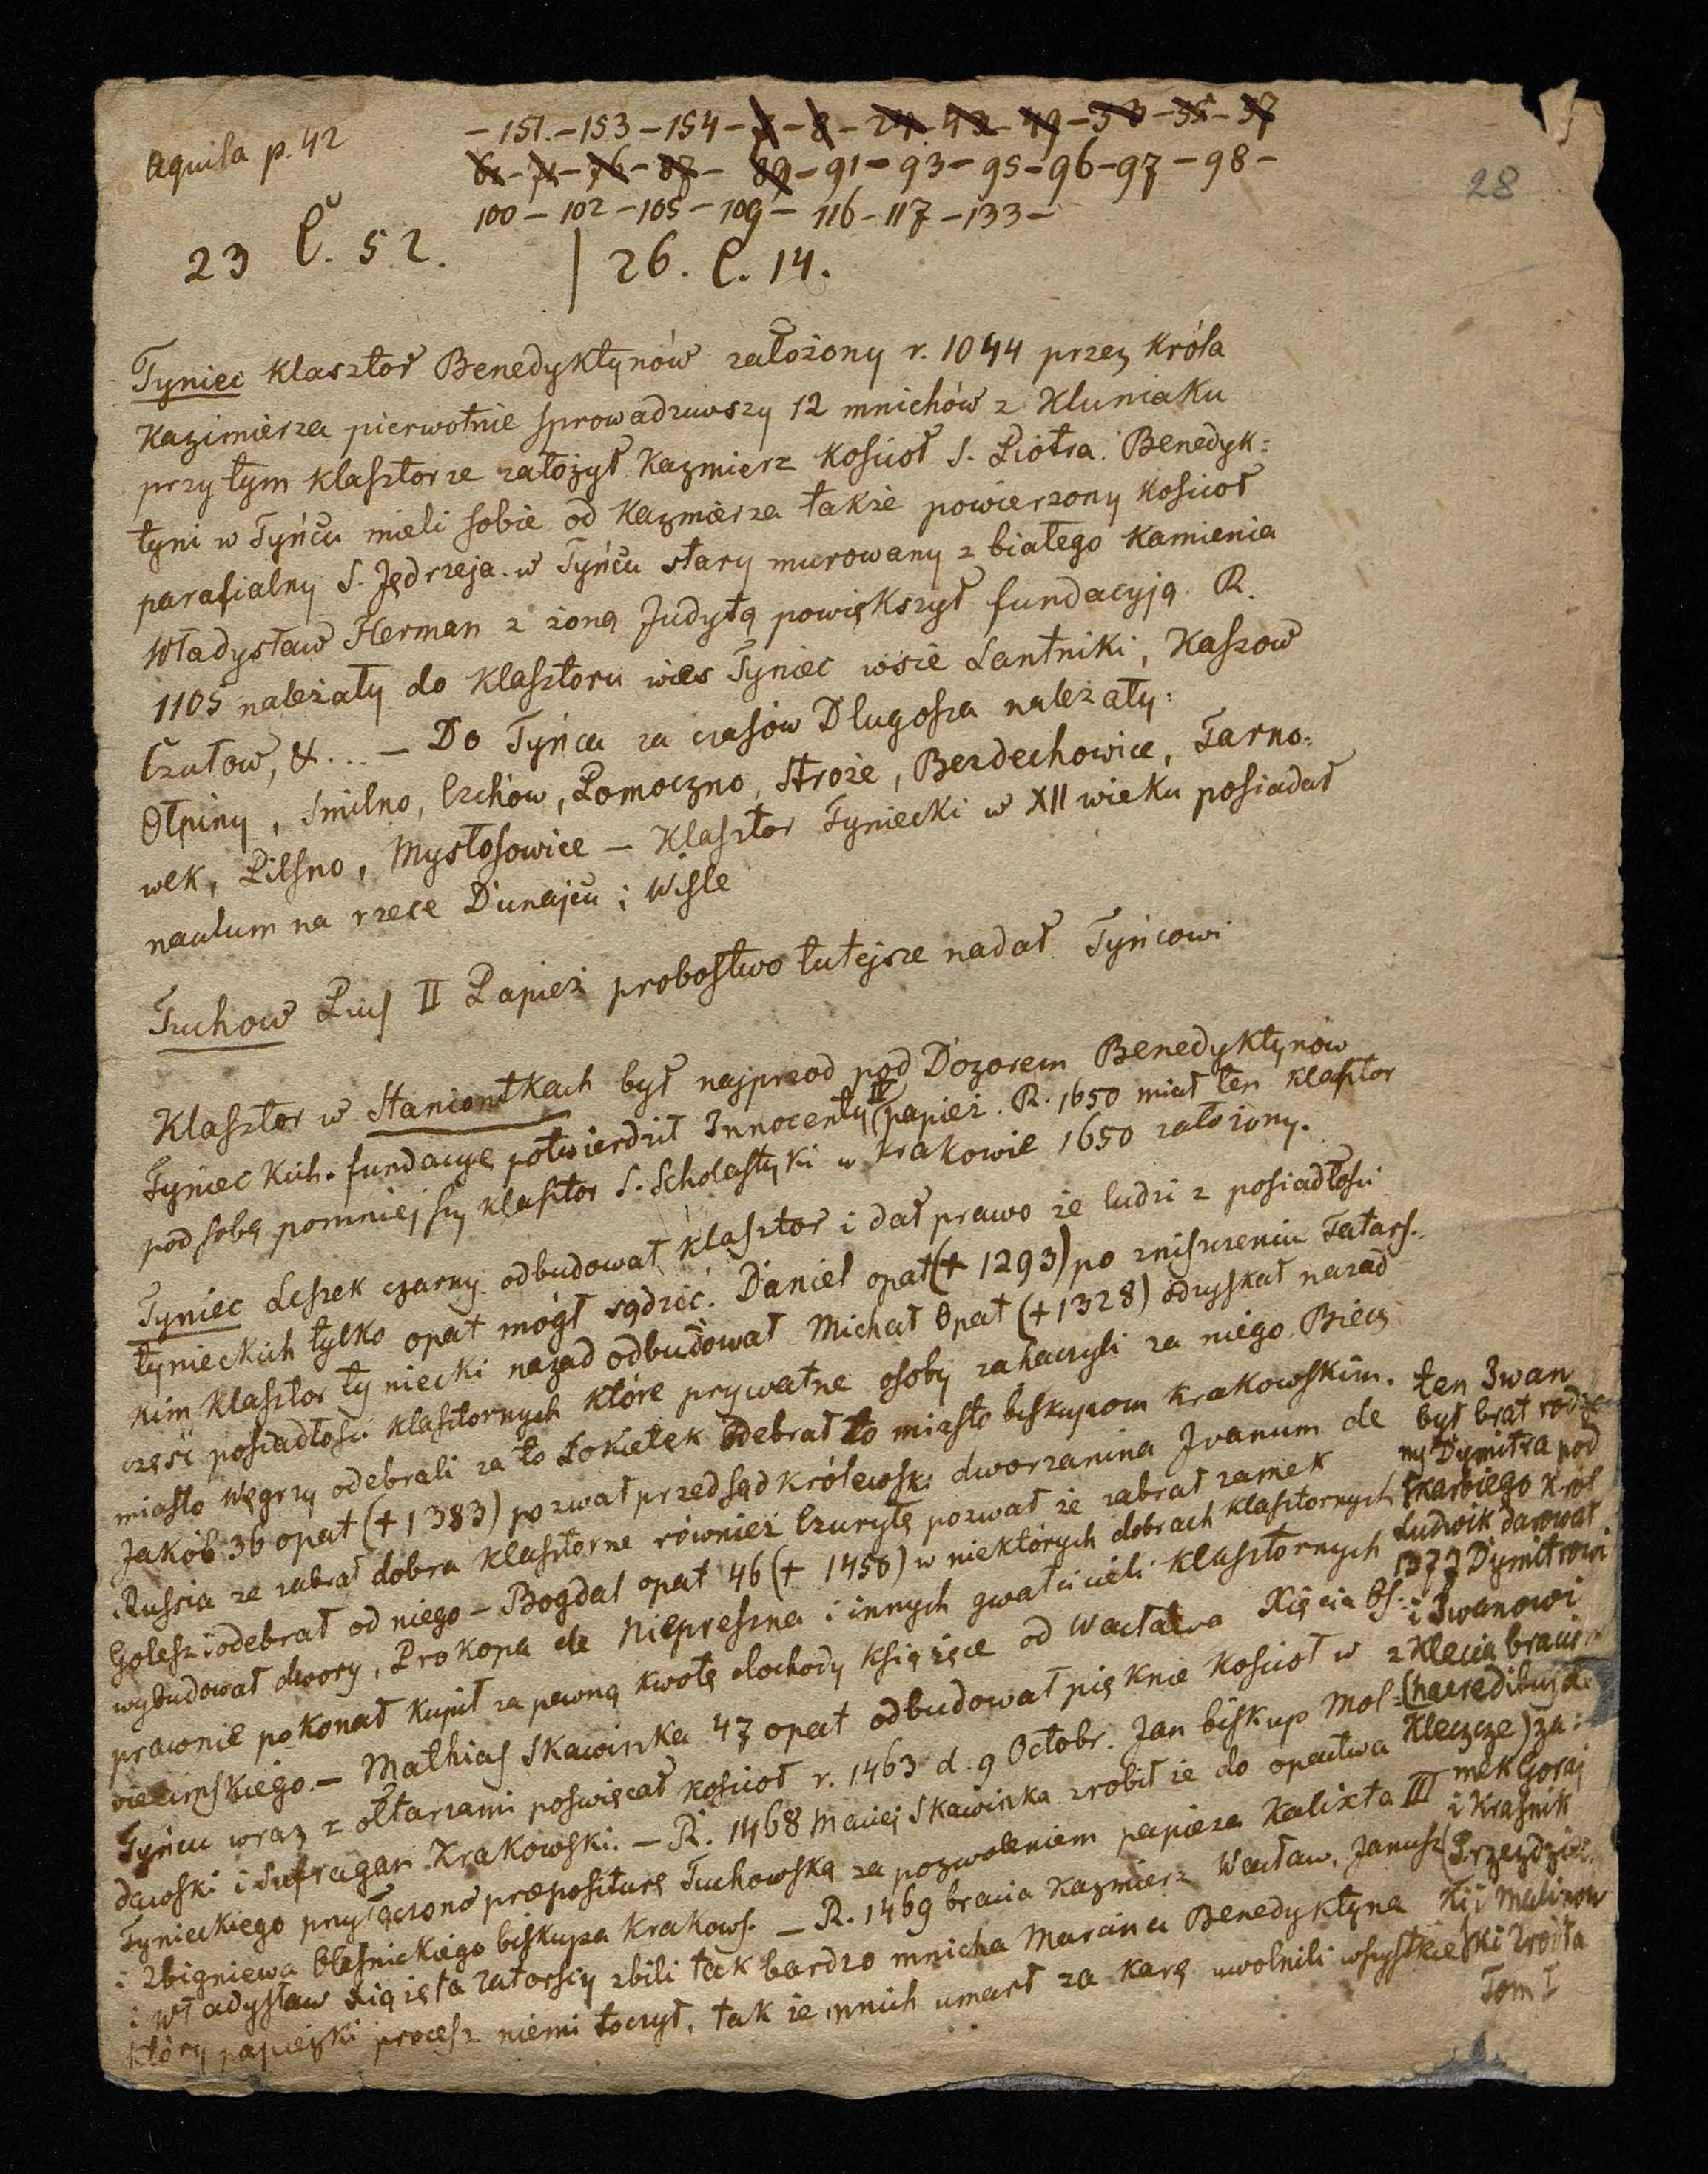 Aquila p. 42
– 151. – 153 – 154 – 7 – 8 – 24 – 42 – 49 – 53 – 55 – 57
61 – 71 – 76 – 87 – 89 – 91 – 93 – 95 – 96 – 97 – 98 –
100 – 102 – 105 – 109 – 116 – 117 – 133 –
28
23 C. 52. | 26. C. 14.
Tyniec Klasztor Benedyktynów założony r. 1044 przez Króla
Kazimierza pierwotnie sprowadzuwszy 12 mnichów z Kluniaku
przy tym klasztorze założył Kazmierz Kościoł S. Piotra. Benedyk=
tyni w Tyńcu mieli sobie od Kazmierza także powierzony Kościoł
parafialny S. Jędrzeja w Tyńcu stary murowany z białego Kamienia
Władysław Herman z żoną Judytą powiększył fundacyją. R.
1105 należały do Klasztoru wies Tyniec wsie Łantniki, Kaszow
Czułow, &... – Do Tyńca za czasów Długosza należały:
Ołpiny, Smilno, Czchów, Pomoczno, Stroże, Bezdechowice, Tarno=
wek, Pilsno, Mysłosowice – Klasztor Tyniecki w XII wieku posiadał
naulum na rzece Dunajcu i Wiśle
Tuchow Pius II Papież probostwo tutejsze nadał Tyńcowi
Klasztor w Staniontkach był najprzod pod Dozorem Benedyktynów
Tynieckich. fundacyę potwierdził Innocenty IV papież. R. 1650 miał ten klasztor
pod sobą pomniejszy klasztor S. Scholastyki w Krakowie 1650 założony.
Tyniec Leszek czarny odbudował klasztor i dał prawo że ludzi z posiadłości
tynieckich tylko opat mógł sądzić. Daniel opat (+ 1293) po zniszczeniu Tatars.
kim klasztor tyniecki nazad odbudował Michał Opat (+ 1328) odzyskał nazad
część posiadłości klasztornych które prywatne osoby zahaczyli za niego Biecz
miasto Węgrzy odebrali za to Łokietek odebrał to miasto biskupom Krakowskim.
Jakób 36 opat (+ 1383) pozwał przed sąd królewski dworzanina Jvanum de
Russia że zabrał dobra klasztorne również Czuryłę pozwał że zabrał zamek
Golesz i odebrał od niego – Bogdal opat 46 (+ 1450) w niektórych dobrach klasztornych
wybudował dwory, Prokopa de Niepreszna i innych gwałcicieli klasztornych
prawnie pokonał kupił za pewną kwotę dochody książęce od Wacława Xięcia Os=
wiecimskiego. – Mathias Skawinka 47 opat odbudował pięknie Kościoł w
Tyńcu wraz z ołtarzami poswięcał kościoł r. 1463 d. 9 Octobr. Jan biskup Mol=
dawski i Sufragan Krakowski. – R. 1468 Maciej Skawinka zrobił że do opactwa
Tynieckiego przyłączono prepositurę Tuchowską za pozwoleniem papieża Kalixta III
i Zbigniewa Oleśnickiego biskupa Krakows. – R. 1469 bracia Kazmierz Wacław, Janusz
i Władysław Xiążęta Zatorscy zbili tak bardzo mnicha Marcina Benedyktyna
który papiezki proces z niemi toczył, tak że mnich umarł za karę uwolnili wszystkie
ten Iwan
był brat rodzo
ny Dymitra pod
skarbiego Król
Ludwik darował
1377 Dymitrowi
i Iwanowi
z Klecia braciom
(haeredibus de
Kleczcze) za=
mek Goraj
i Kraśnik
(Przezdziec
ki i Malinow
ski Zrodła
Tom I